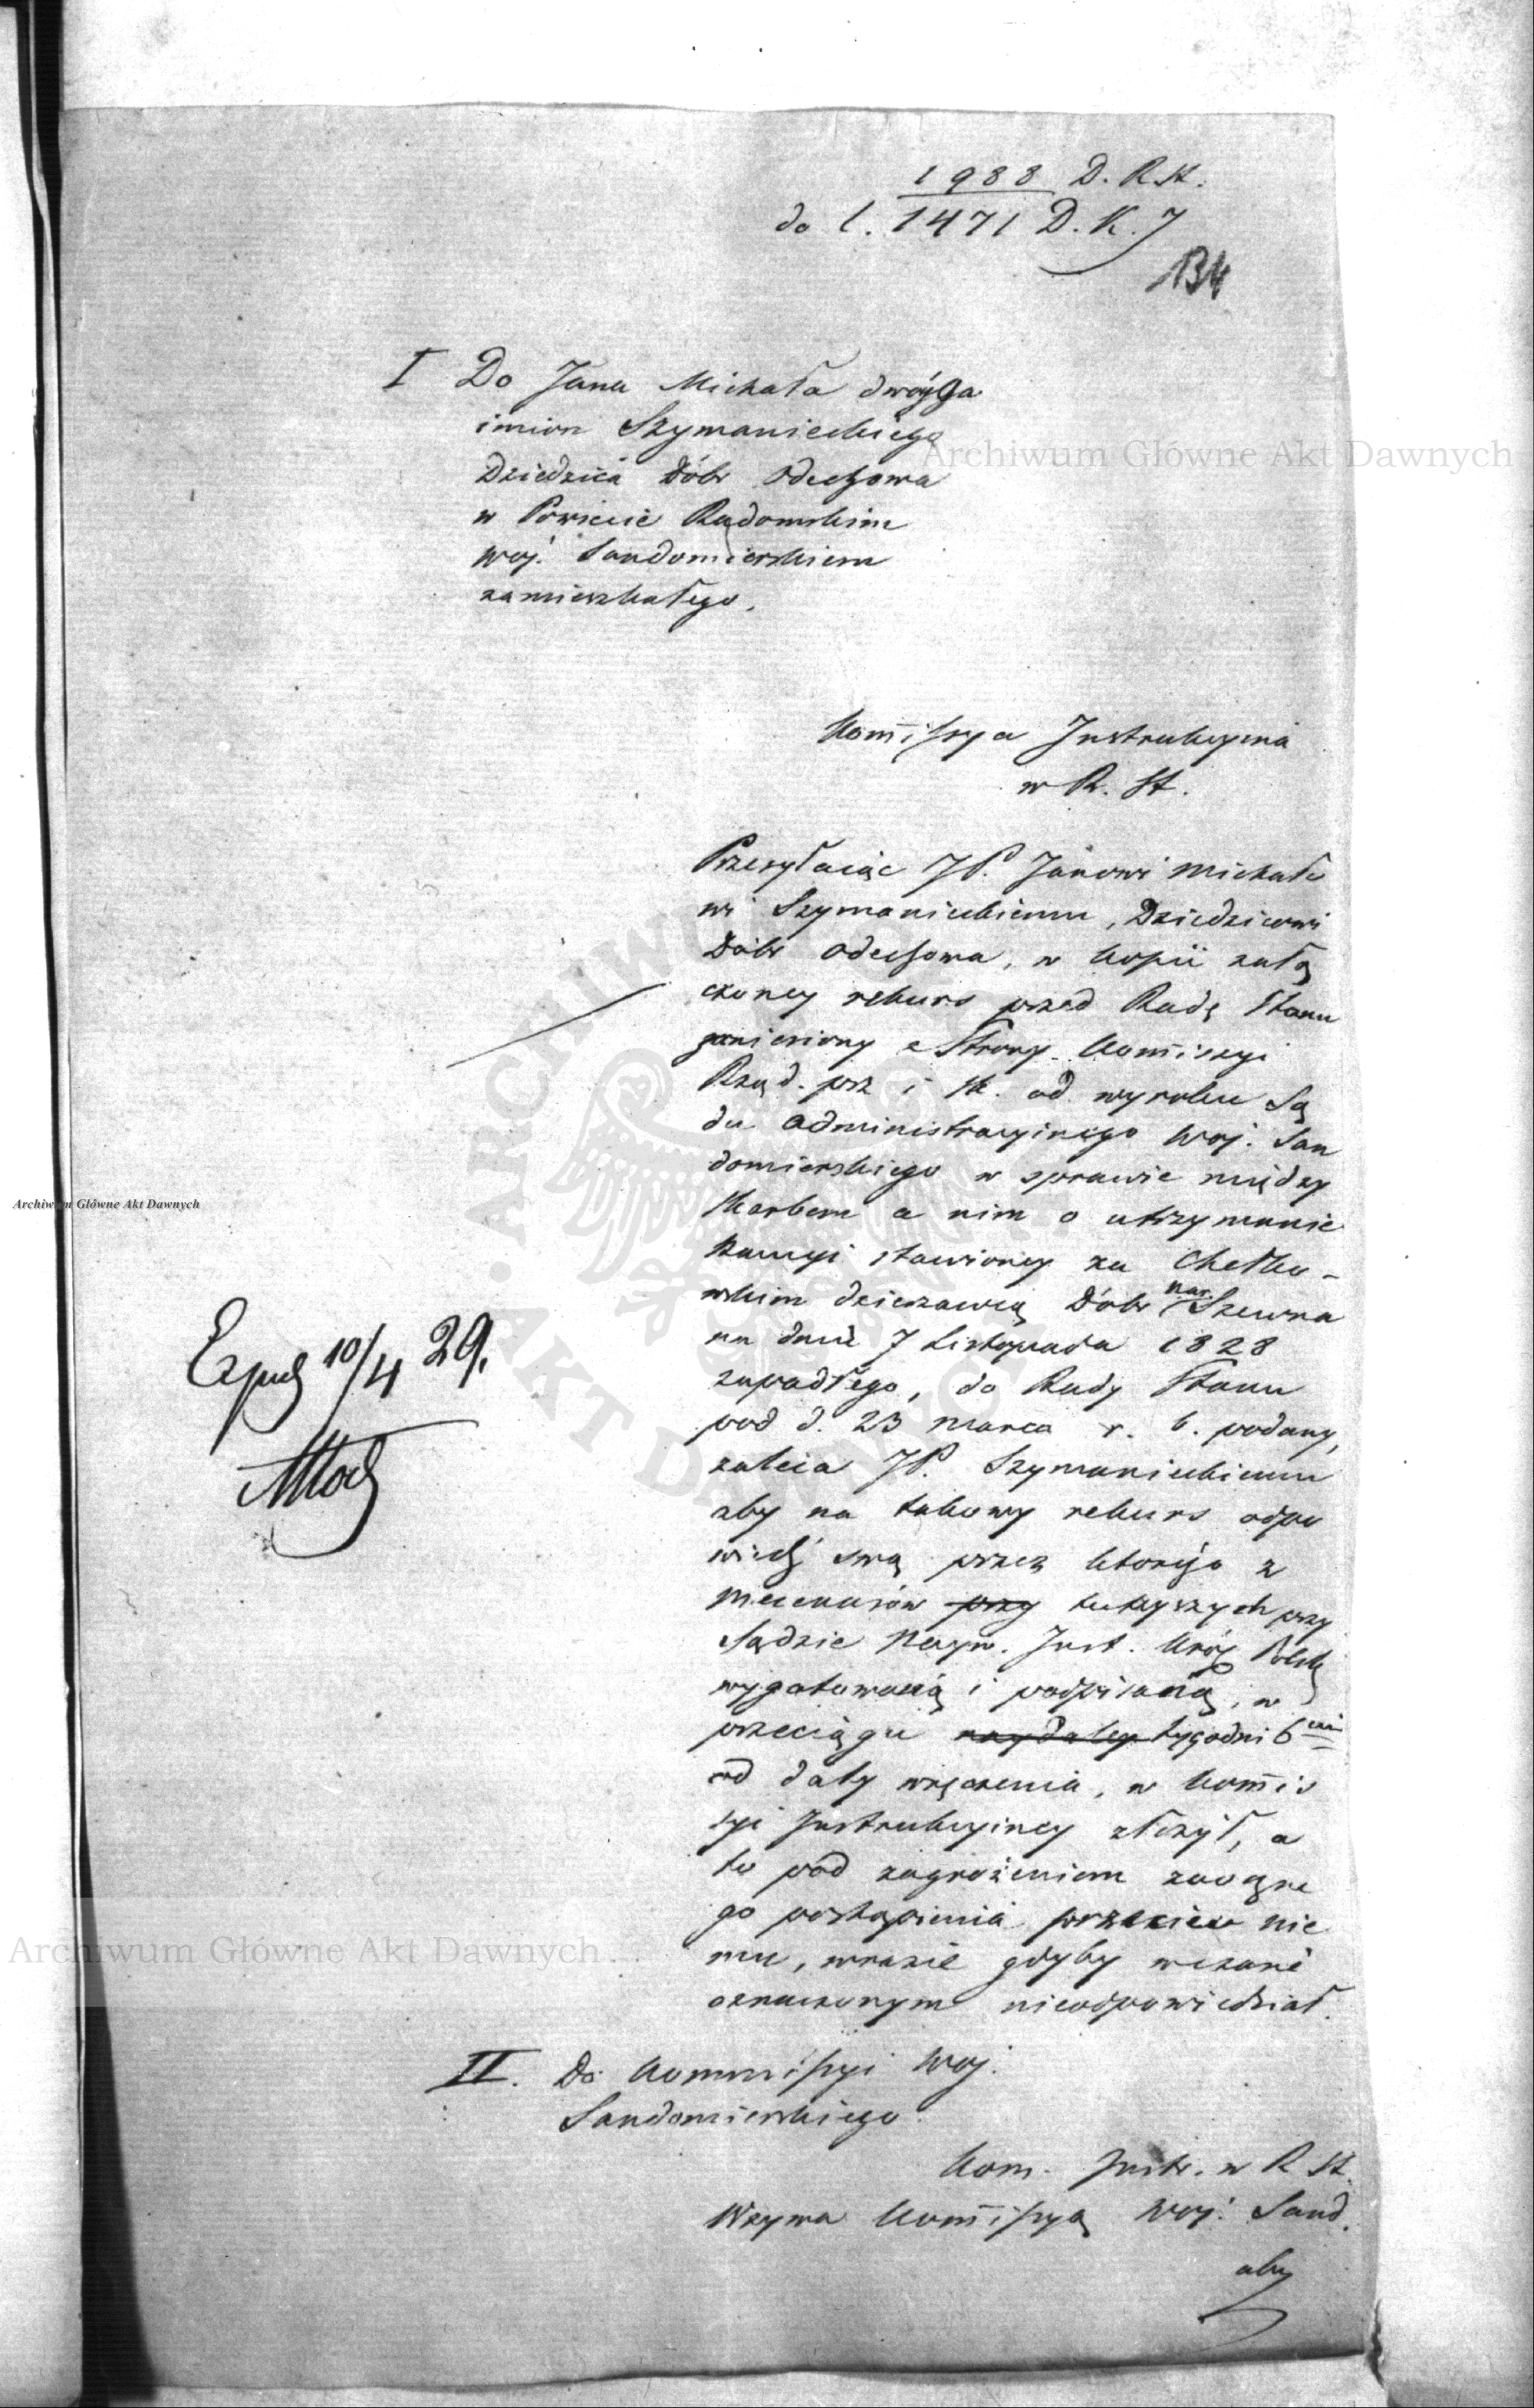 1988 D. R. St.
do l. 1471 D. K. J
134
I Do Jana Michała dwóyga
imion Szymanieckiego
Dziedzica Dóbr Odechowa
w Powiecie Radomskim
Woj. Sandomierskiem
zamieszkałego.
Kom̄issya Instrukcyina
w R. St.
Przesyłaiąc JP. Janowi Michało
wi Szymanieckiemu, Dziedzicowi
Dóbr Odechowa, w kopii załą
czoney rekurs przed Radę Stanu
zaniesiony z Strony Kom̄issyi
Rząd. prz i Sk. od wyroku Są
du Administracyinego Woj. San
domierskiego w sprawie między
Skarbem a nim o utrzymanie
kaucyi stawioney za Chełko-
wskim dzierżawcą Dóbr nar. Szewna
na dniu 7 Listopada 1828
zapadłego, do Rady Stanu
pod d. 23 Marca r. b. podany,
zaleca JP. Szymanieckiemu
aby na takowy rekurs odpo
wiedź swą przez którego z
Mecenasów przy tuteyszych przy
Sądzie Nayw. Inst. Król. Polsk
wygotowaną i podpisaną, w
przeciągu naydaley tygodni 6ciu
od daty wręczenia, w Kom̄is
syi Instrukcyiney złożył, a
to pod zagrożeniem zaoczne
go postąpienia przeciw nie
mu, wrazie gdyby w czasie
oznaczonym nieodpowiedział.
II. Do Kommissyi Woj.
Sandomierskiego
Kom. Instr. w R St.
Wzywa Kom̄issyą Woj. Sand.
aby
Exped 10/4 29.
Archiwum Główne Akt Dawnych
Archiwum Główne Akt Dawnych
Archiwum Główne Akt Dawnych
ARCHIWUM
AKT DAWNYCH